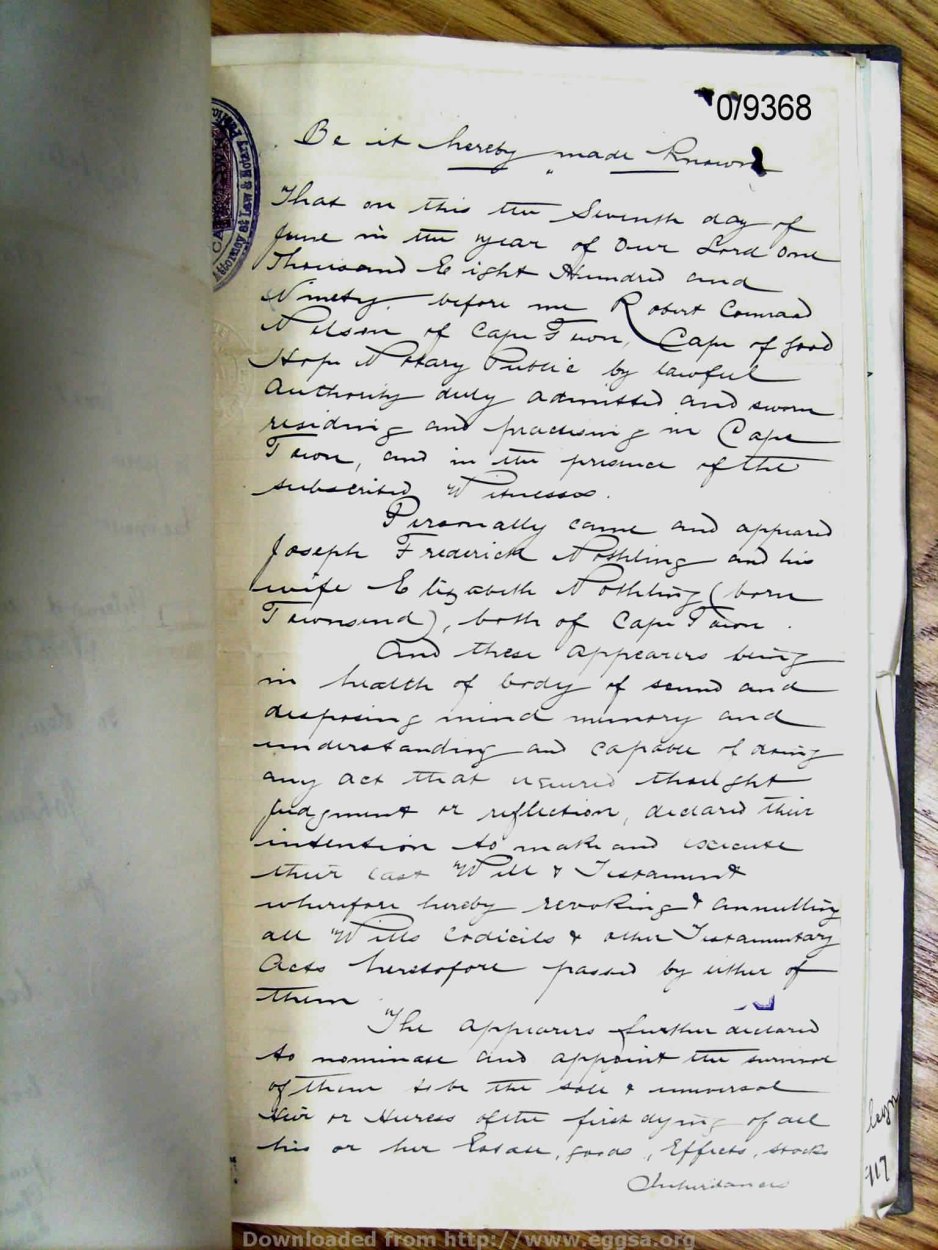 0/9368
Be it hereby made Known
That on this the Seventh day of
June in the year of Our Lord One
Thousand Eight Hundred and
Ninety, before me Robert Conrad
Nelson of Cape Town, Cape of Good
Hope Notary Public by lawful
Authority duly admitted and sworn
residing and practising in Cape
Town, and in the presence of the
subscribed Witnesses.
Personally came and appeared
Joseph Frederick Nothling and his
wife Elizabeth Nothling (born
Townsend), both of Cape Town.
And these appearers being
in health of body of sound and
disposing mind memory and
understanding and capable of doing
any act that required thought
judgment or reflection, declared their
intention to make and execute
their last Will & Testament
wherefore hereby revoking & annulling
all Wills Codicils & other Testamentary
Acts heretofore passed by either of
them
The appearers further declared
to nominate and appoint the survivor
of them to be the sole & universal
Heir or Heiress of the first dying of all
his or her Estate, goods, Effects, stocks
Inheritances
Attorney at Law & Notary Public
Downloaded from http://www.eggsa.org